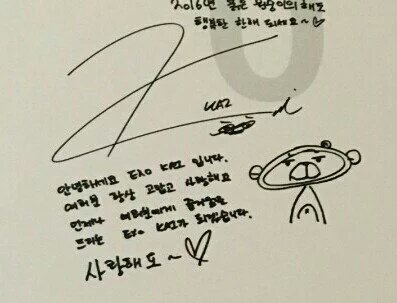 2016년 붉은 원숭이의 해도
행복한 한해 되세요~♡
KAI
안녕하세요 EXO KAI 입니다.
여러분 항상 고맙고 사랑해요
언제나 여러분에게 즐거움을
드리는 EXO KAI가 되겠습니다.
사랑해도~♡